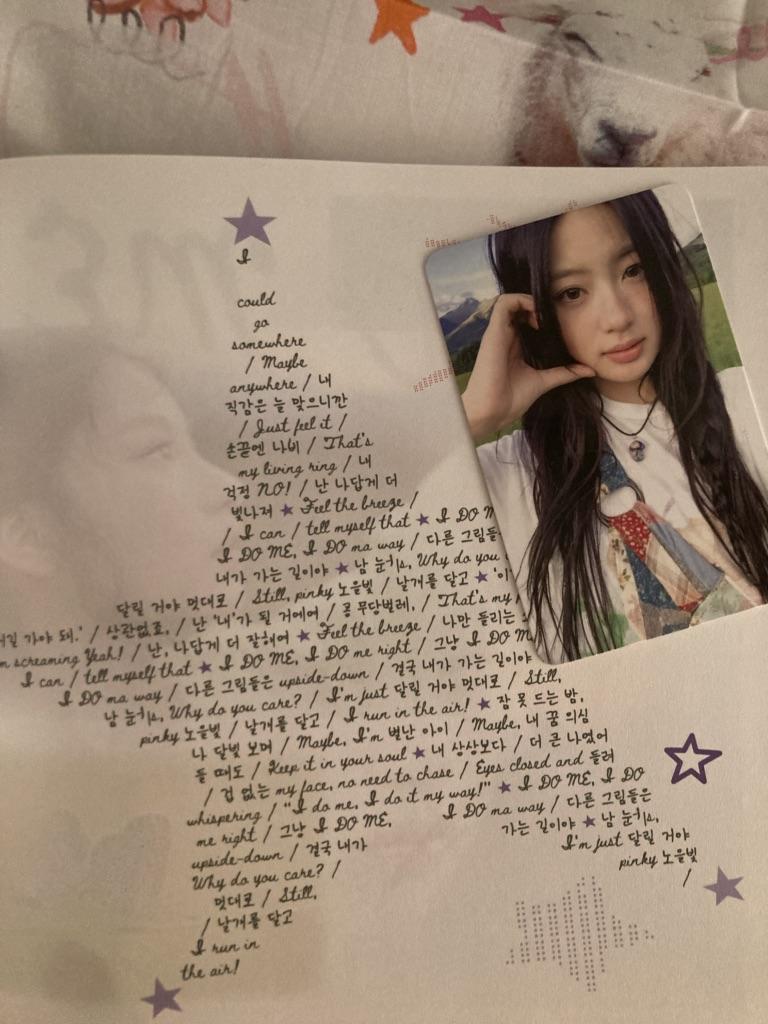 I
could
go
somewhere
/ Maybe
anywhere / 내
직감은 늘 맞으니깐
/ Just feel it /
손끝엔 나비 / That's
my living ring / 내
걱정 NO! / 난 나답게 더
빛나져 ★ Feel the breeze /
/ I can / tell myself that ★ I DO M
I DO ME, I DO ma way / 다른 그림들
내가 가는 길이야 ★ 남 눈치, Why do you
달릴 거야 멋대로 / Still, pinky 노을빛 / 날개를 달고 ★ '이
가야 돼.' / 상관없죠, / 난 '내'가 될 거예여 / 콩 무당벌레, / That's my
screaming Yeah! / 난, 나답게 더 잘해여 ★ Feel the breeze / 나만 들리는
I can / tell myself that ★ I DO ME, I DO me right / 그냥 I DO M
I DO ma way / 다른 그림들은 upside-down / 결국 내가 가는 길이야
남 눈치, Why do you care? / I'm just 달릴 거야 멋대로 / Still,
pinky 노을빛 / 날개를 달고 / I run in the air! ★ 잠 못 드는 밤,
나 달빛 보며 / Maybe, I'm 별난 아이 / Maybe, 내 꿈 의심
들 때도 / Keep it in your soul ★ 내 상상보다 / 더 큰 나였어
/ 겁 없는 my face, no need to chase / Eyes closed and 들려
whispering / "I do me, I do it my way!" ★ I DO ME, I DO
me right / 그냥 I DO ME, I DO ma way / 다른 그림들은
upside-down / 결국 내가 가는 길이야 ★ 남 눈치,
Why do you care? / I'm just 달릴 거야
멋대로 / Still, pinky 노을빛
/ 날개를 달고 /
I run in
the air!